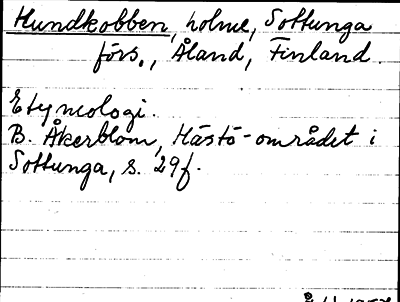 Hundkobben, holme, Sottunga
förs., Åland, Finland.
Etymologi.
B. Åkerblom, Hästö-området i
Sottunga, s. 29f.